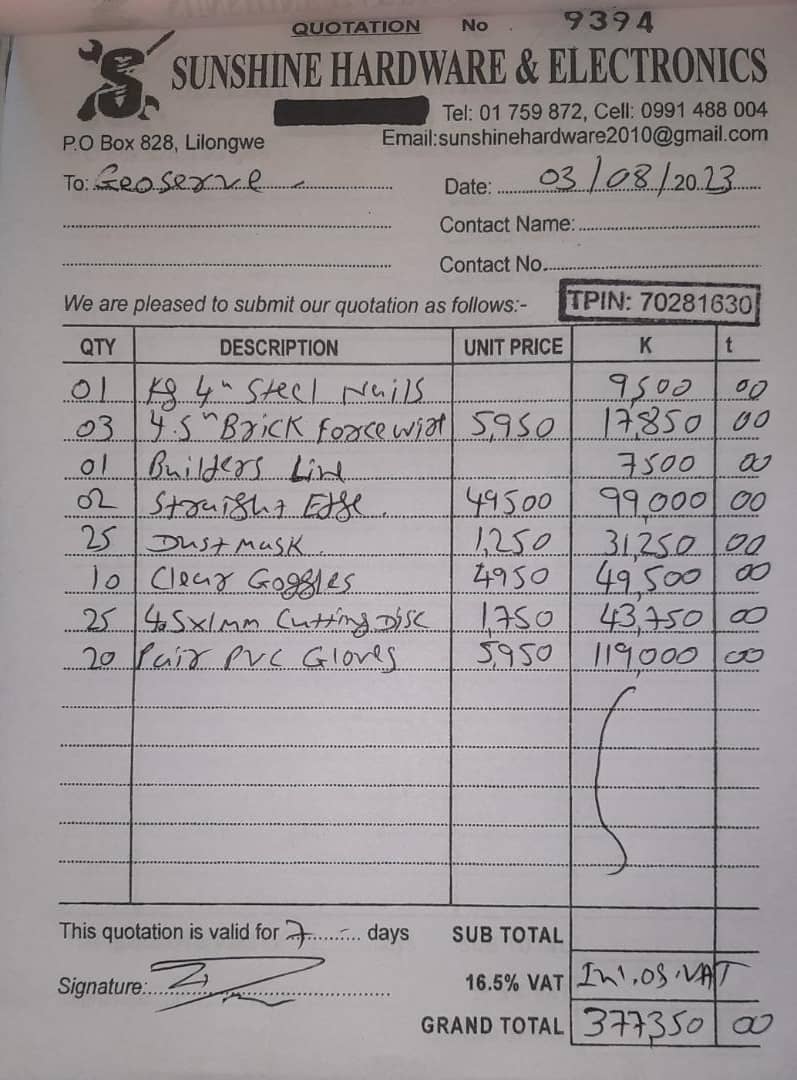 QUOTATION No. 9394
SUNSHINE HARDWARE & ELECTRONICS
Tel: 01 759 872, Cell: 0991 488 004
P.O Box 828, Lilongwe Email:sunshinehardware2010@gmail.com
To: Geoserve Date: 03/08/2023
Contact Name:
Contact No.
We are pleased to submit our quotation as follows:- TPIN: 70281630
QTY DESCRIPTION UNIT PRICE K t
01 Kg 4" Steel Nails 9,500 00
03 4.5" Brick force wire 5,950 17,850 00
01 Builders Line 7500 00
02 Straight Edge 49500 99,000 00
25 Dust mask 1,250 31,250 00
10 Clear Goggles 4950 49,500 00
25 4.5x1mm Cutting Disc 1,750 43,750 00
20 Pair PVC Gloves 5,950 119,000 00
This quotation is valid for 7 days SUB TOTAL
Signature: 16.5% VAT VAT
GRAND TOTAL 377,350 00